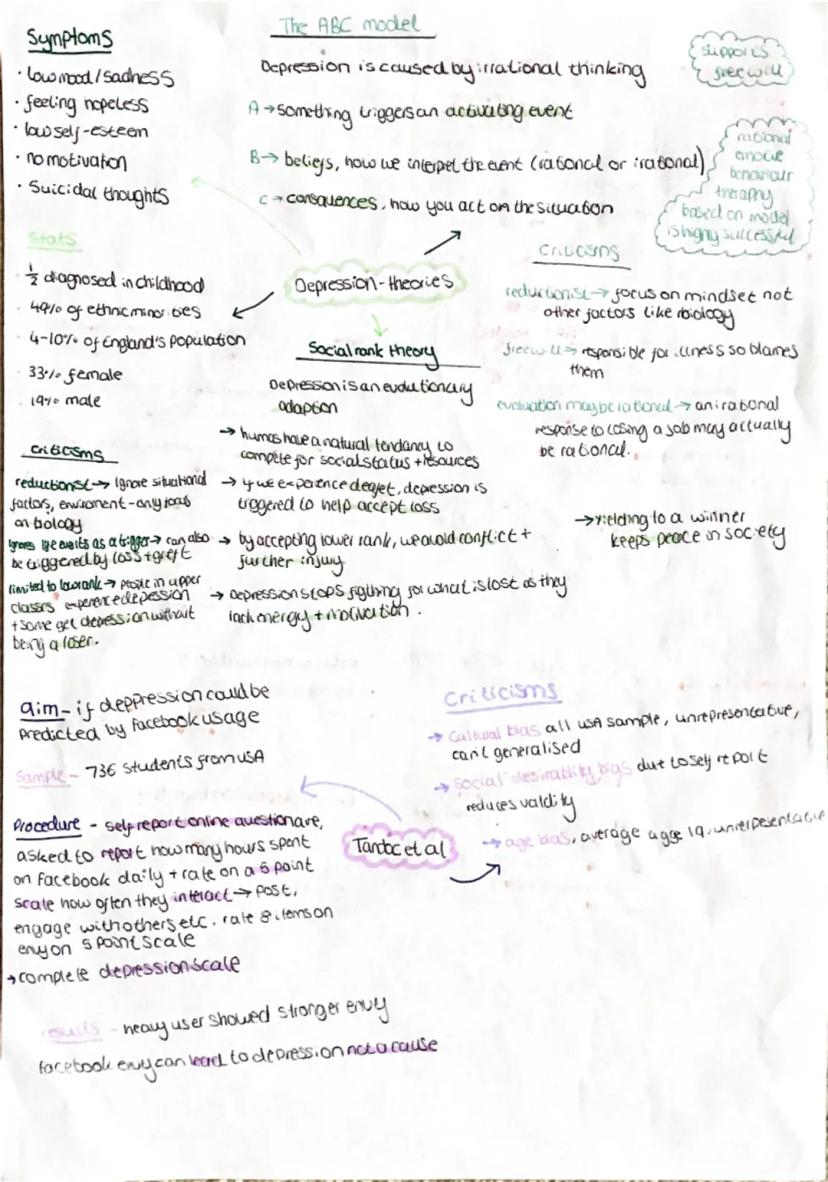 Symptoms
· low mood/sadness
· feeling hopeless
· low self-esteem
· no motivation
· Suicidal thoughts
The ABC model
Depression is caused by irrational thinking
A → something triggers an activating event
B → beliefs, how we interpet the event (rational or irational)
C → consquences, how you act on the situation
supports
free will
rational
emotive
behaviour
theraphy
based on model
is highly successful
Stats
½ diagnosed in childhood
· 49% of ethnic minorities
· 4-10% of England's population
· 33% female
· 19% male
Depression - theories
criticisms
reductionist → focus on mindset not
other factors like biology
freewill → responsible for illness so blames
them
evaluation may be rational → an irational
response to losing a job may actually
be rational.
Social rank theory
Depression is an evolutionary
adaption
→ humas have a natural tendancy to
compete for social status + resources
→ if we experience defeet, depression is
triggered to help accept loss
→ by accepting lower rank, we avoid conflict +
further injury
→ depression stops fighting for what is lost as they
lack energy + motivation.
→ yielding to a winner
keeps peace in society
criticisms
reductionist → Ignore situational
factors, enviroment - only focus
on biology
Ignores life events as a trigger → can also
be triggered by loss + greift
limited to low rank → people in upper
classes experience depession
+ some get depression without
being a loser.
aim - if deppression could be
predicted by facebook usage
Sample - 736 students from USA
Procedure - self report online questionare,
asked to report how many hours spent
on facebook daily + rate on a 5 point
scale how often they interact → post,
engage with others etc. rate 8 items on
envy on 5 point scale
→ complete depression scale
results - heavy user showed stronger envy
facebook envy can lead to depression not a cause
Tandoc et al
Criticisms
→ Cultural bias all USA sample, unrepresentative,
can't generalised
→ Social desirability bias due to self report
reduces validity
→ age bias, average age 19, unrepesentative